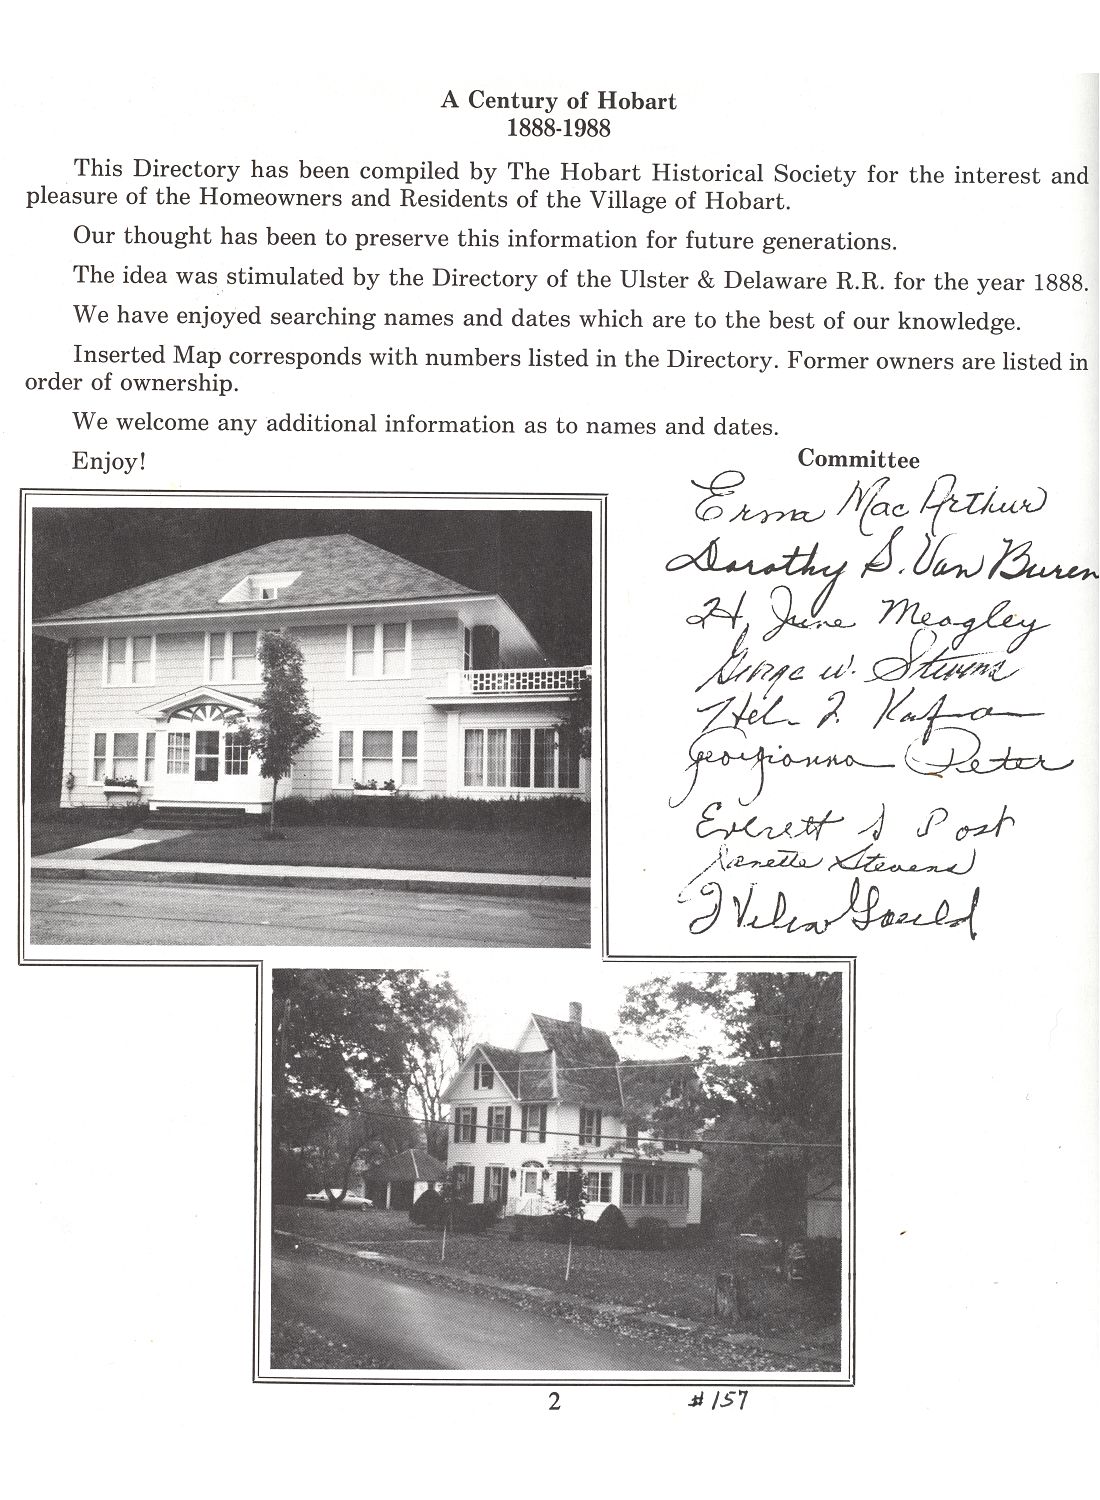 A Century of Hobart
1888-1988
This Directory has been compiled by The Hobart Historical Society for the interest and
pleasure of the Homeowners and Residents of the Village of Hobart.
Our thought has been to preserve this information for future generations.
The idea was stimulated by the Directory of the Ulster & Delaware R.R. for the year 1888.
We have enjoyed searching names and dates which are to the best of our knowledge.
Inserted Map corresponds with numbers listed in the Directory. Former owners are listed in
order of ownership.
We welcome any additional information as to names and dates.
Enjoy!
Committee
Erma MacArthur
Dorothy S. Van Buren
H. June Meagley
George W. Stevens
Georgianna Peter
Everett S Post
Nanette Stevens
Gould
2
#157